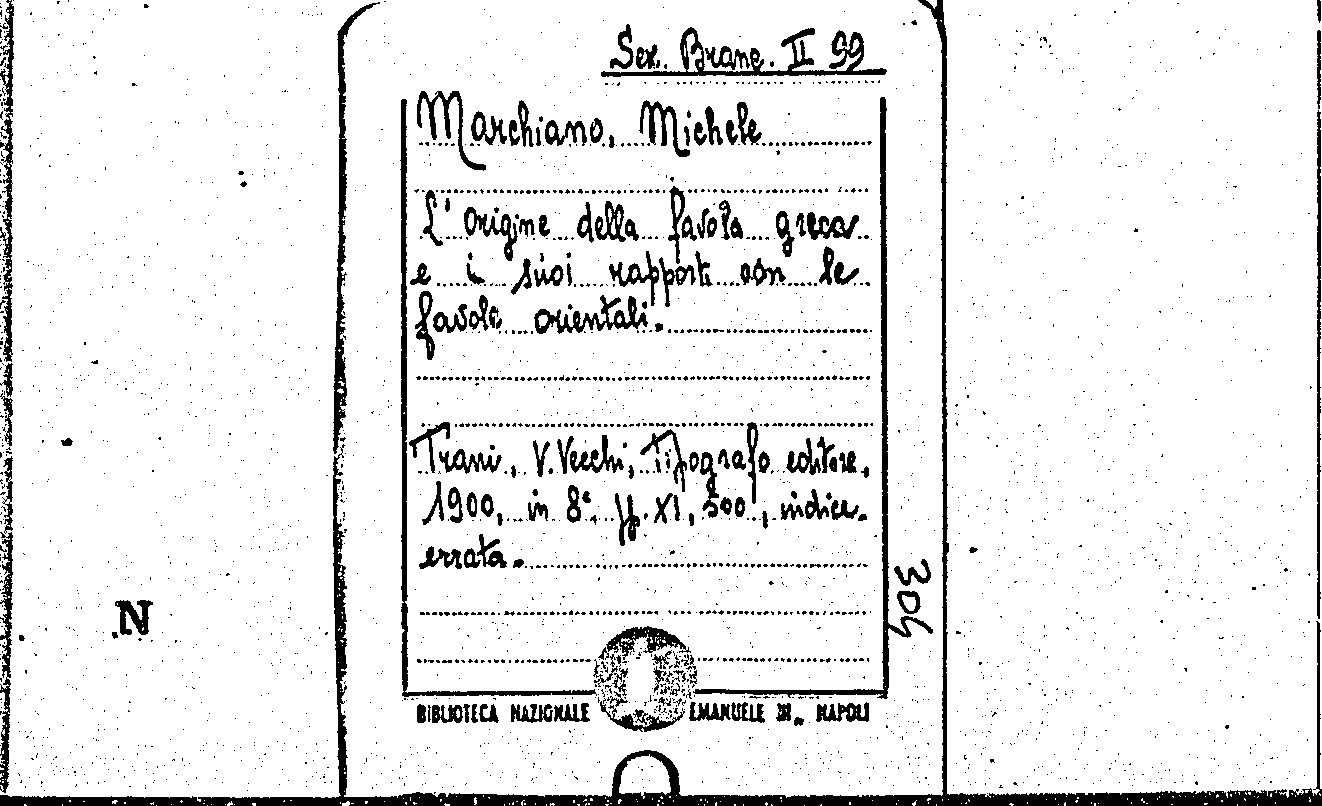 Sez. Branc. II 99
Marchiano, Michele
L'origine della favola greca
e i suoi rapporti con le
favole orientali.
Trani, V. Vecchi, Tipografo editore,
1900, in 8°, pp. XI, 500, indice.
errata.
304
N
BIBLIOTECA NAZIONALE EMANUELE III„ NAPOLI